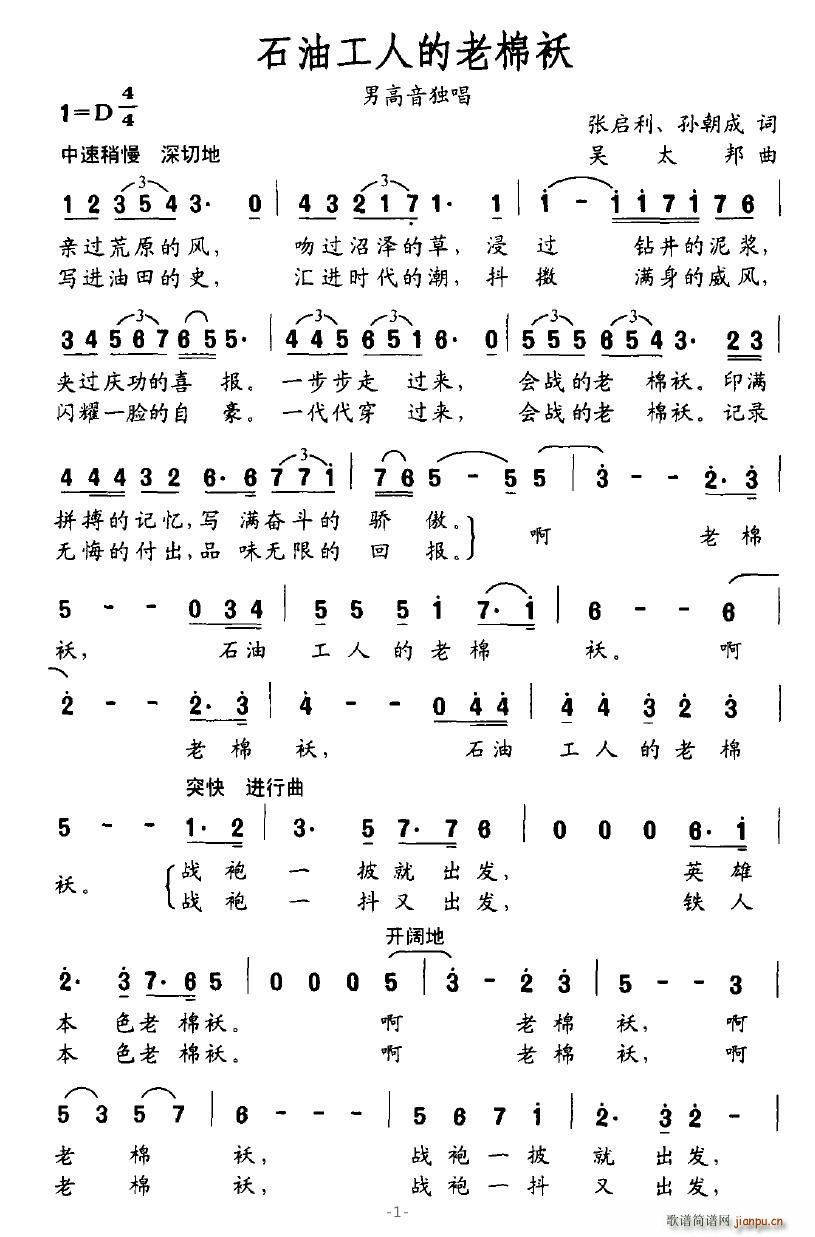 石油工人的老棉袄
男高音独唱
1=D 4/4
张启利、孙朝成 词
中速稍慢 深切地
吴太邦曲
1 2 3 5 4 3· 0 | 4 3 2 1 7 1· 1 | 1 - 1 1 7 1 7 6
亲过荒原的风， 吻过沼泽的草，浸过 钻井的泥浆，
写进油田的史， 汇进时代的潮，抖擞 满身的威风，
3 4 5 6 7 6 5 5· | 4 4 5 6 5 1 6· 0 | 5 5 5 6 5 4 3· 2 3
夹过庆功的喜 报。一步步走 过来， 会战的老 棉袄。印满
闪耀一脸的自 豪。一代代穿 过来， 会战的老 棉袄。记录
4 4 4 3 2 6· 6 7 7 1 | 7 6 5 - 5 5 | 3 - - 2· 3
拼搏的记忆，写 满奋斗的 骄 傲。 啊 老 棉
无悔的付出，品 味无限的 回 报。
5 - - 0 3 4 | 5 5 5 1 7· 1 | 6 - - 6
袄， 石油 工人的老棉 袄。 啊
2 - - 2· 3 | 4 - - 0 4 4 | 4 4 3 2 3
老棉 袄， 石油 工人的老棉
突快 进行曲
5 - - 1· 2 | 3· 5 7· 7 6 | 0 0 0 6· 1
袄。 战袍 一 披就出发， 英雄
战袍 一 抖又出发， 铁人
开阔地
2· 3 7· 6 5 | 0 0 0 5 | 3 - 2 3 | 5 - - 3
本 色老棉袄。 啊 老棉 袄， 啊
本 色老棉袄。 啊 老棉 袄， 啊
5 3 5 7 | 6 - - - | 5 6 7 1 | 2· 3 2 -
老 棉 袄， 战袍一披 就 出发，
老 棉 袄， 战袍一抖 又 出发，
-1-
歌谱简谱网 jianpu.cn